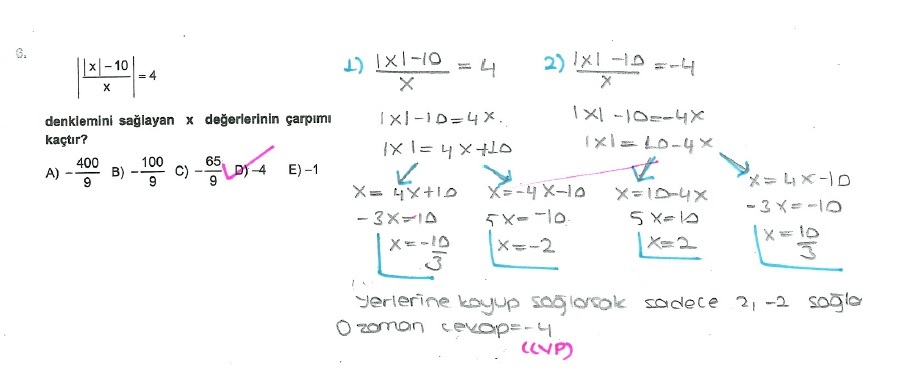 6.
||x| - 10 / x| = 4
denklemini sağlayan x değerlerinin çarpımı
kaçtır?
A) -400/9 B) -100/9 C) -65/9 D) -4 E) -1
1) |x|-10 / x = 4
|x|-10=4x.
|x|= 4x+10
x= 4x+10
-3x=10
x=-10/3
x=-4x-10
5x=-10
x=-2
2) |x|-10 / x =-4
|x|-10=-4x
|x|=10-4x
x=10-4x
5x=10
x=2
x=4x-10
-3x=-10
x=10/3
Yerlerine koyup sağlarsak sadece 2, -2 sağlar
O zaman cevap=-4
((VP)